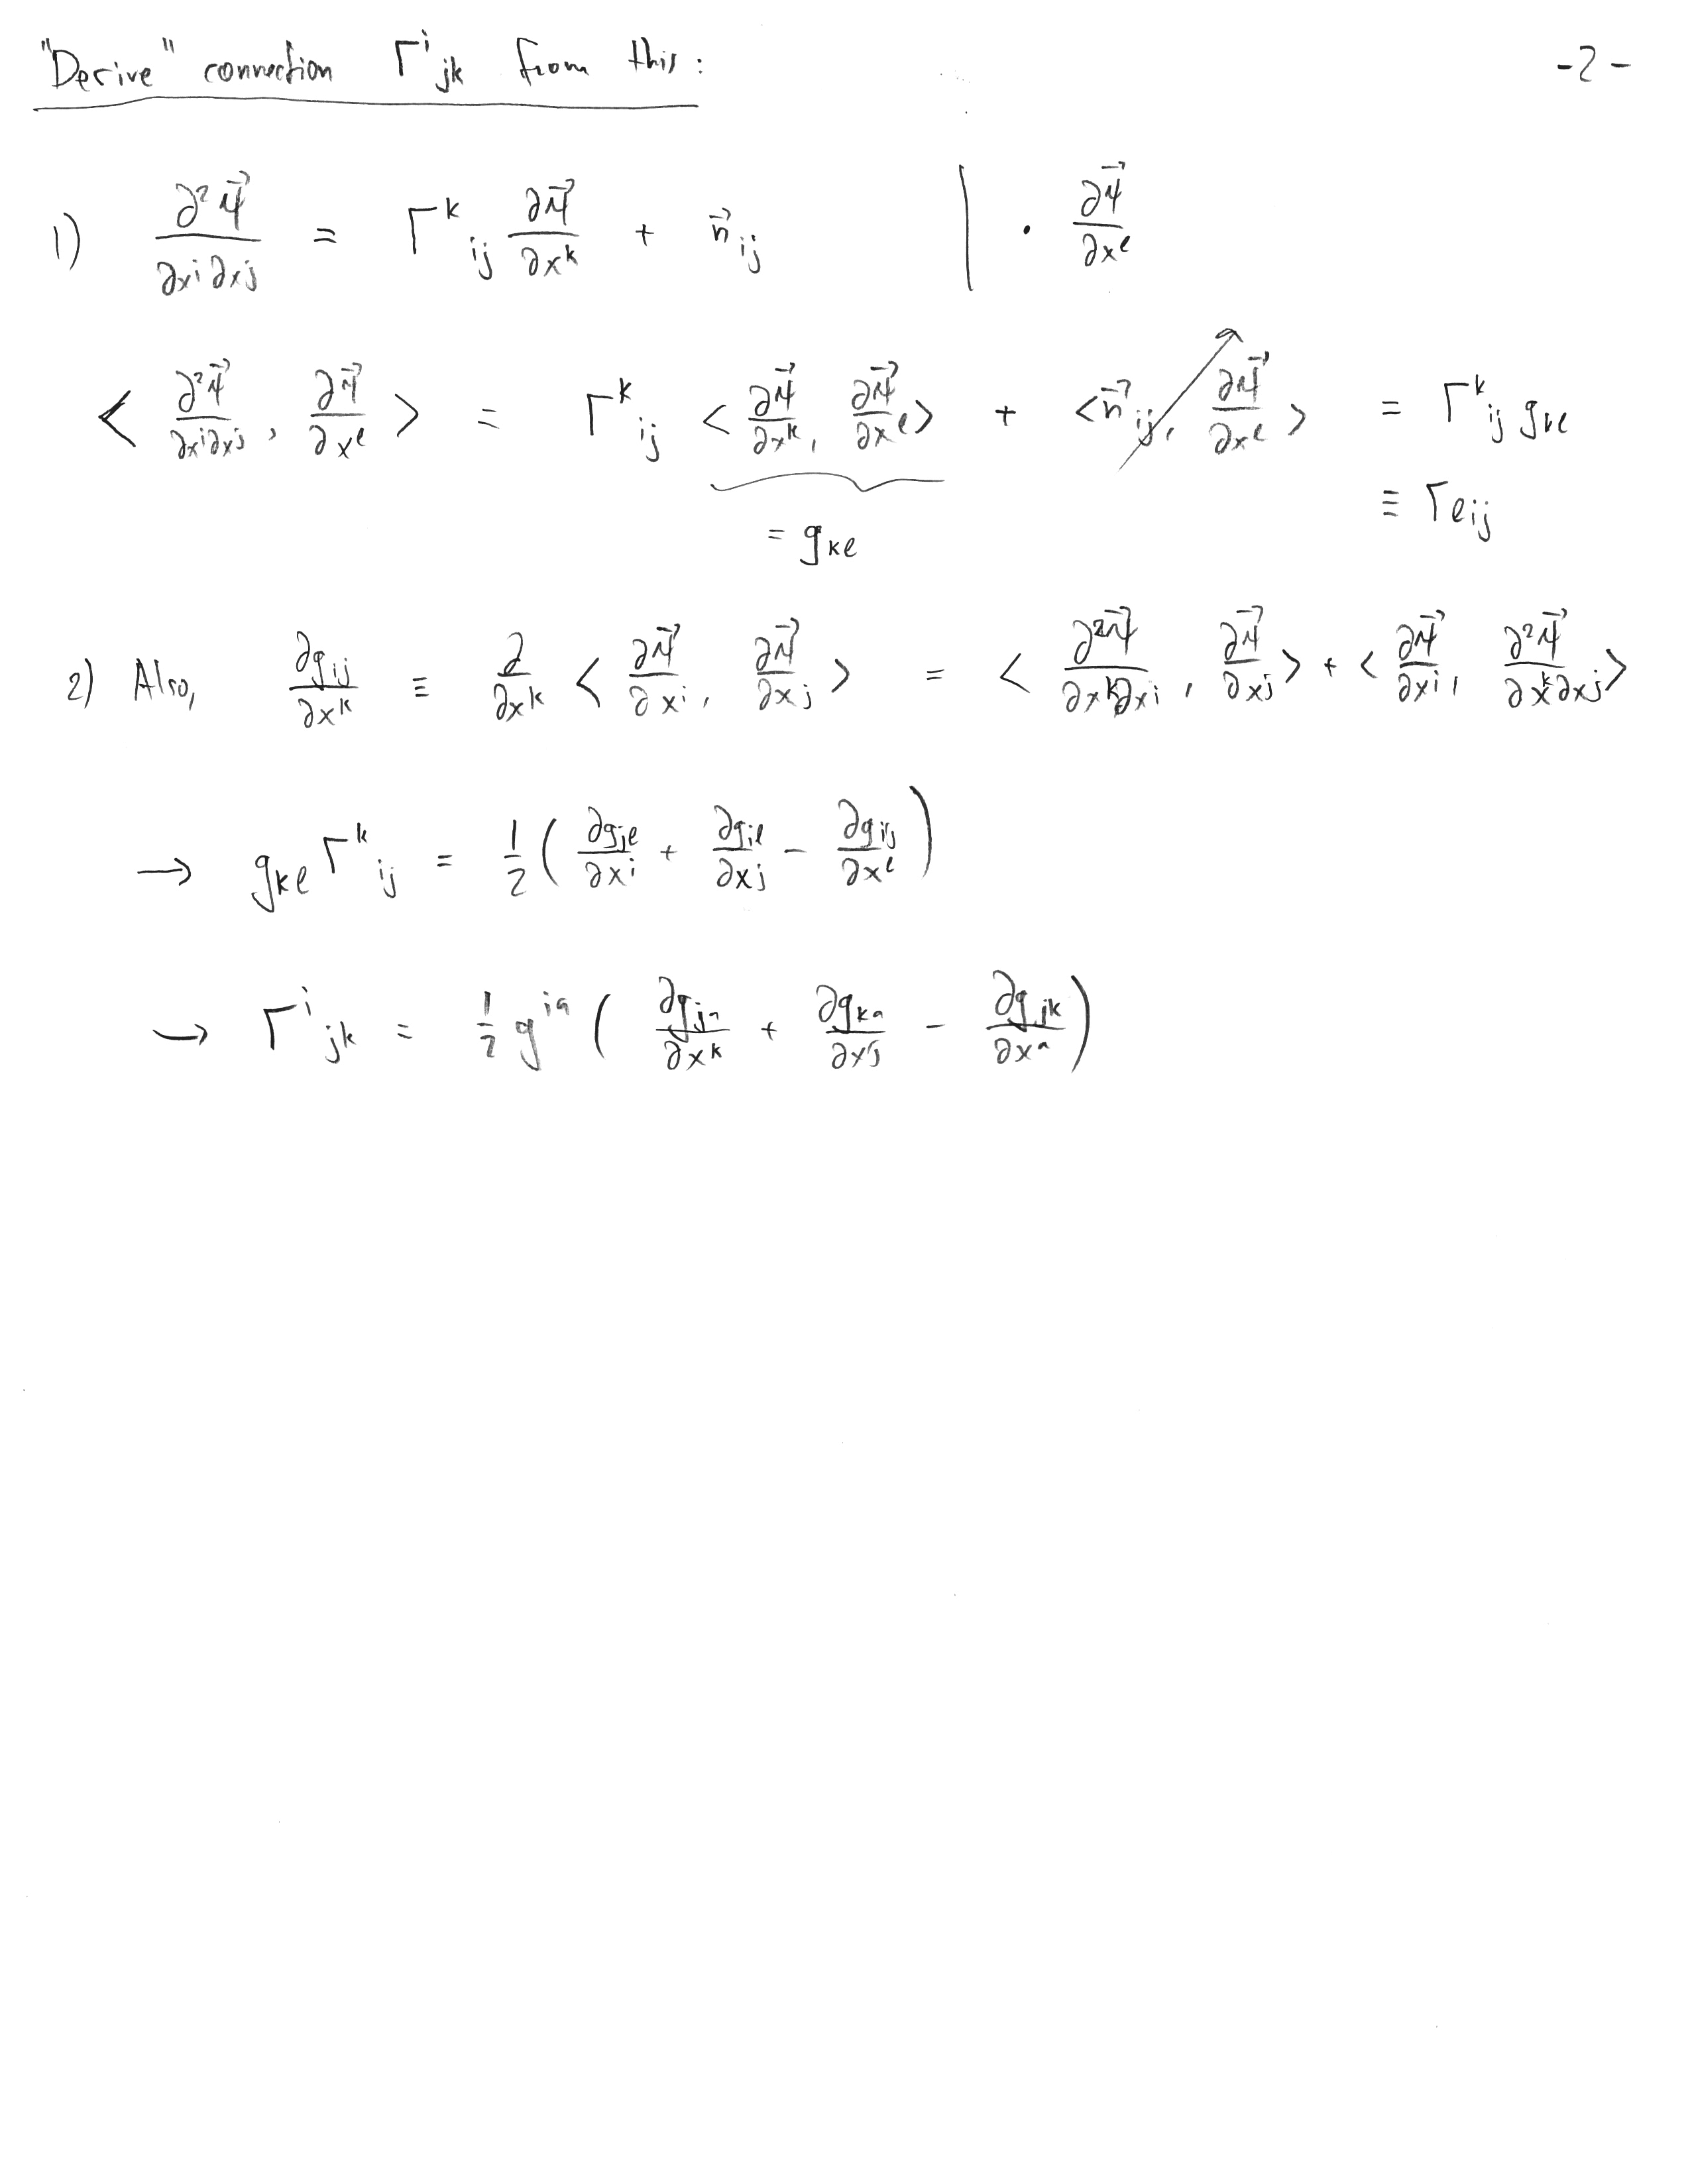 "Derive" connection Γ^i_jk from this: -2-
1) ∂²Ψ⃗/∂x^i∂x^j = Γ^k_ij ∂Ψ⃗/∂x^k + n⃗_ij | · ∂Ψ⃗/∂x^l
< ∂²Ψ⃗/∂x^i∂x^j , ∂Ψ⃗/∂x^l > = Γ^k_ij < ∂Ψ⃗/∂x^k , ∂Ψ⃗/∂x^l > + < n⃗_ij , ∂Ψ⃗/∂x^l > = Γ^k_ij g_kl
≡ Γ_lij
= g_kl
2) Also, ∂g_ij/∂x^k ≡ ∂/∂x^k < ∂Ψ⃗/∂x^i , ∂Ψ⃗/∂x^j > = < ∂²Ψ⃗/∂x^k∂x^i , ∂Ψ⃗/∂x^j > + < ∂Ψ⃗/∂x^i , ∂²Ψ⃗/∂x^k∂x^j >
→ g_kl Γ^k_ij = 1/2 ( ∂g_jl/∂x^i + ∂g_il/∂x^j - ∂g_ij/∂x^l )
→ Γ^i_jk = 1/2 g^ia ( ∂g_ja/∂x^k + ∂g_ka/∂x^j - ∂g_jk/∂x^a )